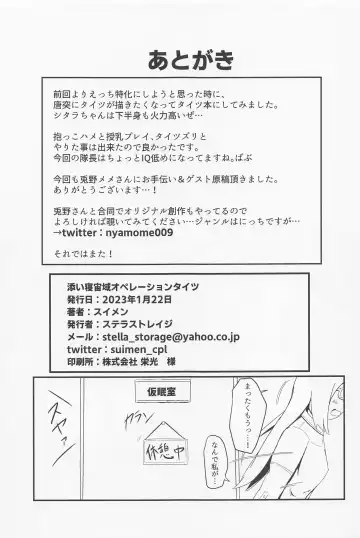 あとがき
前回よりえっち特化にしようと思った時に、
唐突にタイツが描きたくなってタイツ本にしてみました。
シタラちゃんは下半身も火力高いぜ…
抱っこハメと授乳プレイ、タイツズリと
やりた事は出来たので良かったです。
今回の隊長はちょっとIQ低めになってますね。ばぶ
今回も兎野メメさんにお手伝い＆ゲスト原稿頂きました。
ありがとうございます…！
兎野さんと合同でオリジナル創作もやってるので
よろしければ覗いてみてください…ジャンルはにっちですが…
→twitter：nyamome009
それではまた！
添い寝宙域オペレーションタイツ
発行日：2023年1月22日
著者：スイメン
発行者：ステラストレイジ
メール：stella_storage@yahoo.co.jp
twitter：suimen_cpl
印刷所：株式会社 栄光　様
まったくもうっ…！
なんで私が…
仮眠室
カラン
休憩中
スヤァ